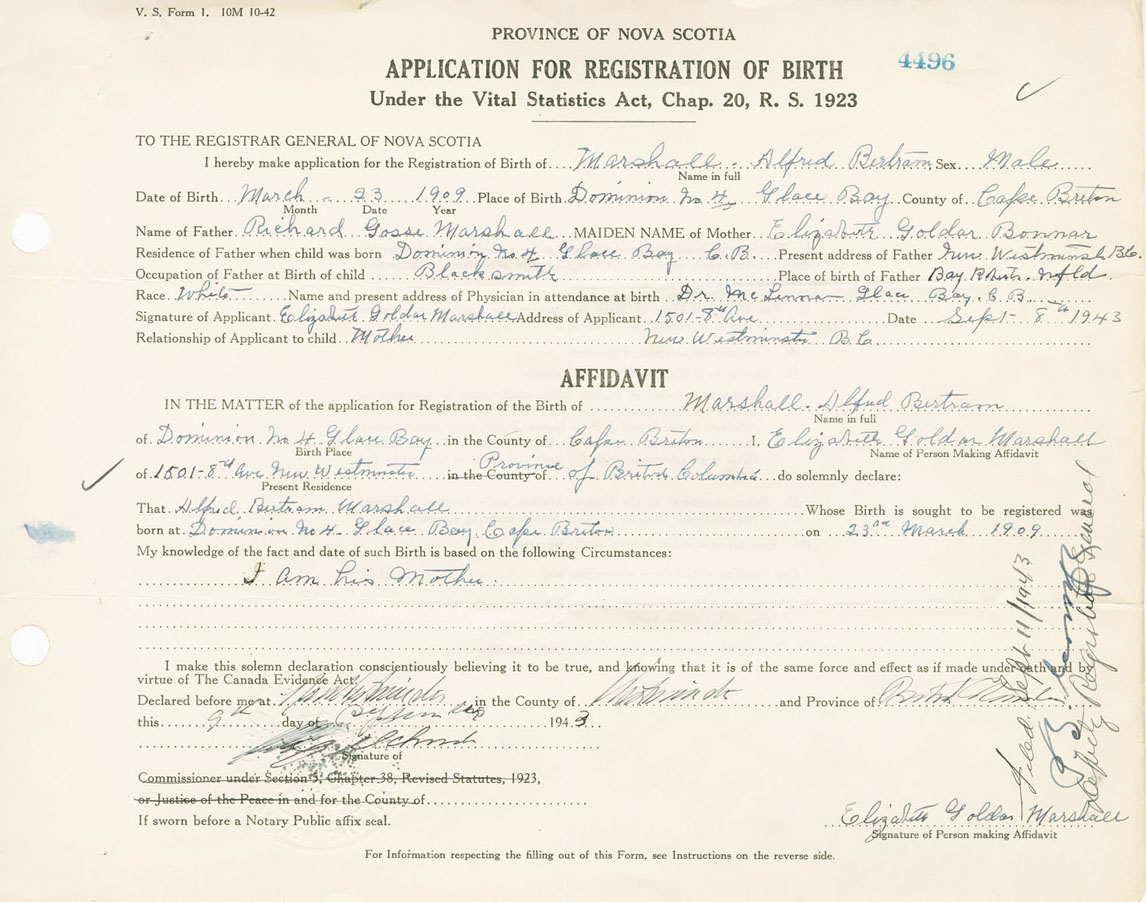 V. S. Form 1. 10M 10-42
PROVINCE OF NOVA SCOTIA
4496
APPLICATION FOR REGISTRATION OF BIRTH
Under the Vital Statistics Act, Chap. 20, R. S. 1923
TO THE REGISTRAR GENERAL OF NOVA SCOTIA
I hereby make application for the Registration of Birth of Marshall - Alfred Bertram Sex Male
Name in full
Date of Birth March - 23 1909 Place of Birth Dominion No 4 Glace Bay County of Cape Briton
Month Date Year
Name of Father Richard Gosse Marshall MAIDEN NAME of Mother Elizabeth Goldar Bonnar
Residence of Father when child was born Dominion No 4 Glace Bay C.B. Present address of Father New Westminster B.C.
Occupation of Father at Birth of child Blacksmith Place of birth of Father Bay Roberts. Nfld.
Race White Name and present address of Physician in attendance at birth Dr. McLennan Glace Bay. C.B.
Signature of Applicant Elizabeth Goldar Marshall Address of Applicant 1501-8th Ave Date Sept - 8th 1943
Relationship of Applicant to child Mother New Westminster B.C.
AFFIDAVIT
IN THE MATTER of the application for Registration of the Birth of Marshall - Alfred Bertram
Name in full
of Dominion No 4 Glace Bay in the County of Cape Briton I, Elizabeth Goldar Marshall
Birth Place Name of Person Making Affidavit
of 1501-8th Ave New Westminster in the County of Province of British Columbia do solemnly declare:
Present Residence
That Alfred Bertram Marshall Whose Birth is sought to be registered was
born at Dominion No 4 Glace Bay Cape Briton on 23rd March 1909
My knowledge of the fact and date of such Birth is based on the following Circumstances:
I Am his Mother.
I make this solemn declaration conscientiously believing it to be true, and knowing that it is of the same force and effect as if made under oath and by
virtue of The Canada Evidence Act.
Declared before me at New Westminster in the County of Westminster and Province of British Columbia
this 9th day of September 1943
Signature of
Commissioner under Section 5, Chapter 38, Revised Statutes, 1923,
or Justice of the Peace in and for the County of
If sworn before a Notary Public affix seal.
Elizabeth Goldar Marshall
Signature of Person making Affidavit
For Information respecting the filling out of this Form, see Instructions on the reverse side.
Filed. Sept 11/1943
Deputy Registrar General